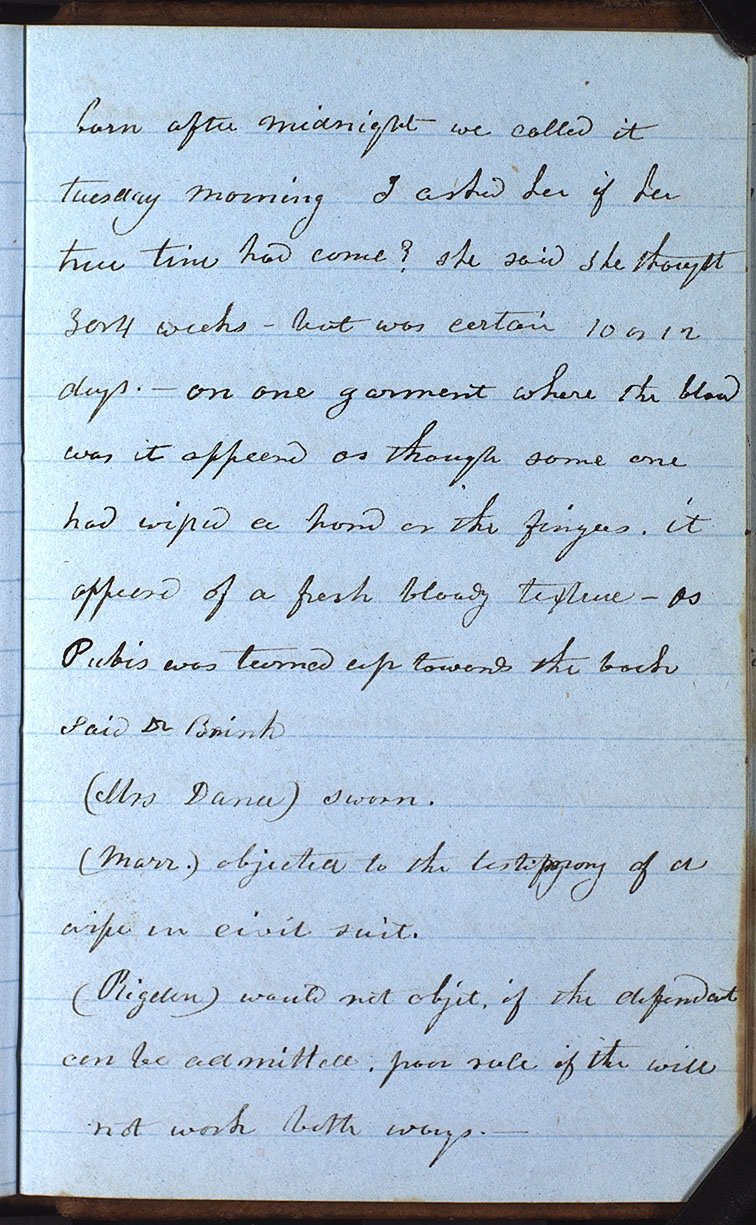 born after midnight we called it
tuesday morning I asked her if her
true time had come? she said she thought
3 or 4 weeks - but was certain 10 or 12
days. - on one garment where the blood
was it appeared as though some one
had wiped a hand or the fingers. it
appeared of a fresh bloody texture - os
Pubis was turned up towards the back
said Dr Brink
(Mrs Dana) sworn.
(Marr.) objected to the testimony of a
wife in civil suit.
(Rigdon) would not objet, if the defendant
can be admitted. poor rule if the will
not work both ways. -